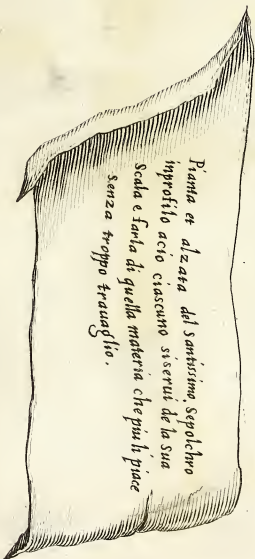 Pianta et alzata del santissimo sepolchro
inprofilo acio ciascuno siserui de la sua
Scala e farla di quella materia che piu li piace
senza troppo trauaglio.